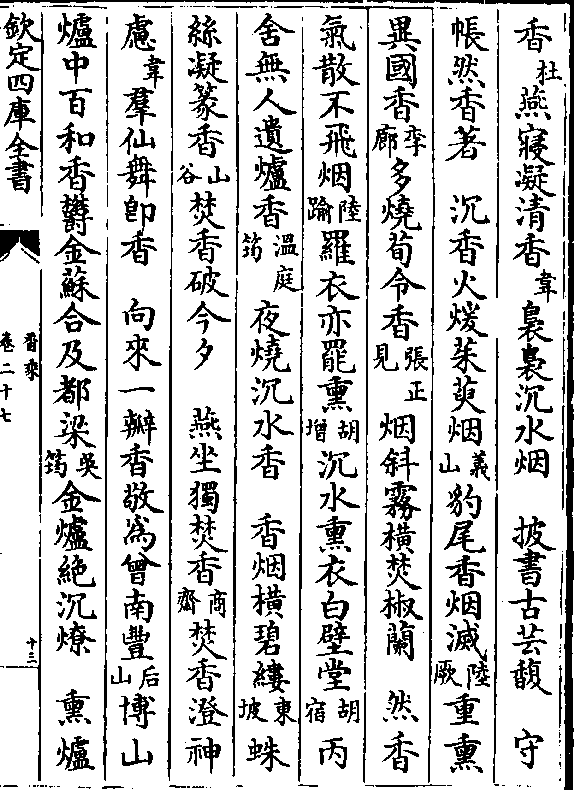 香杜燕寢凝清香韋裊裊沉水烟　披書古芸馥　守
帳然香著　沉香火煖茱萸烟義山豹尾香烟滅陸厥重熏
異國香李廓多燒荀令香張正見烟斜霧橫焚椒蘭　然香
氣散不飛烟陸踰羅衣亦罷熏胡增沉水熏衣白璧堂胡宿丙
舍無人遺爐香溫庭筠夜燒沉水香　香烟橫碧縷東坡蛛
絲凝篆香山谷焚香破今夕　燕坐獨焚香商齊焚香澄神
慮韋羣仙舞卽香　向來一瓣香敬爲曾南豐后山博山
爐中百和香鬱金蘇合及都梁吳筠金爐絶沉燎　熏爐
欽定四庫全書
香乘
卷二十七
十三